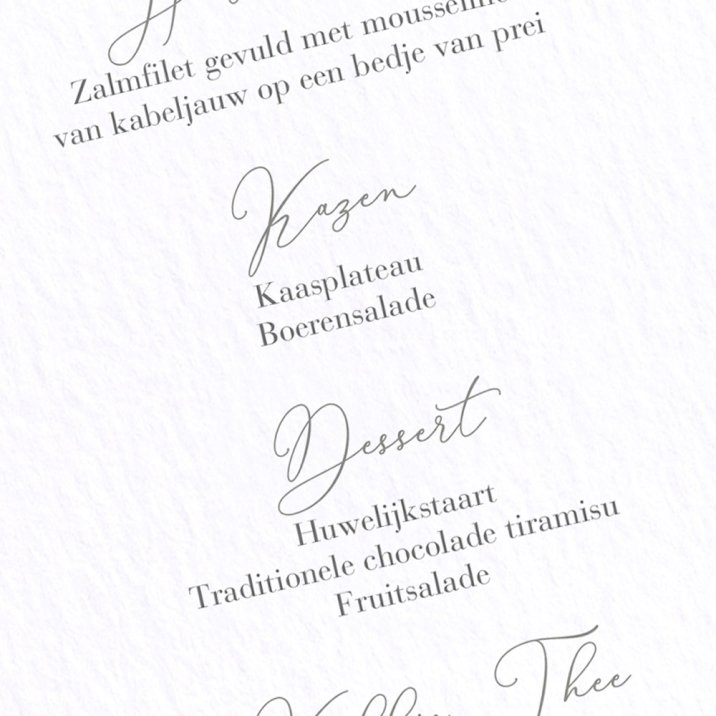 Zalmfilet gevuld met mousseline
van kabeljauw op een bedje van prei
Kazen
Kaasplateau
Boerensalade
Dessert
Huwelijkstaart
Traditionele chocolade tiramisu
Fruitsalade
Thee